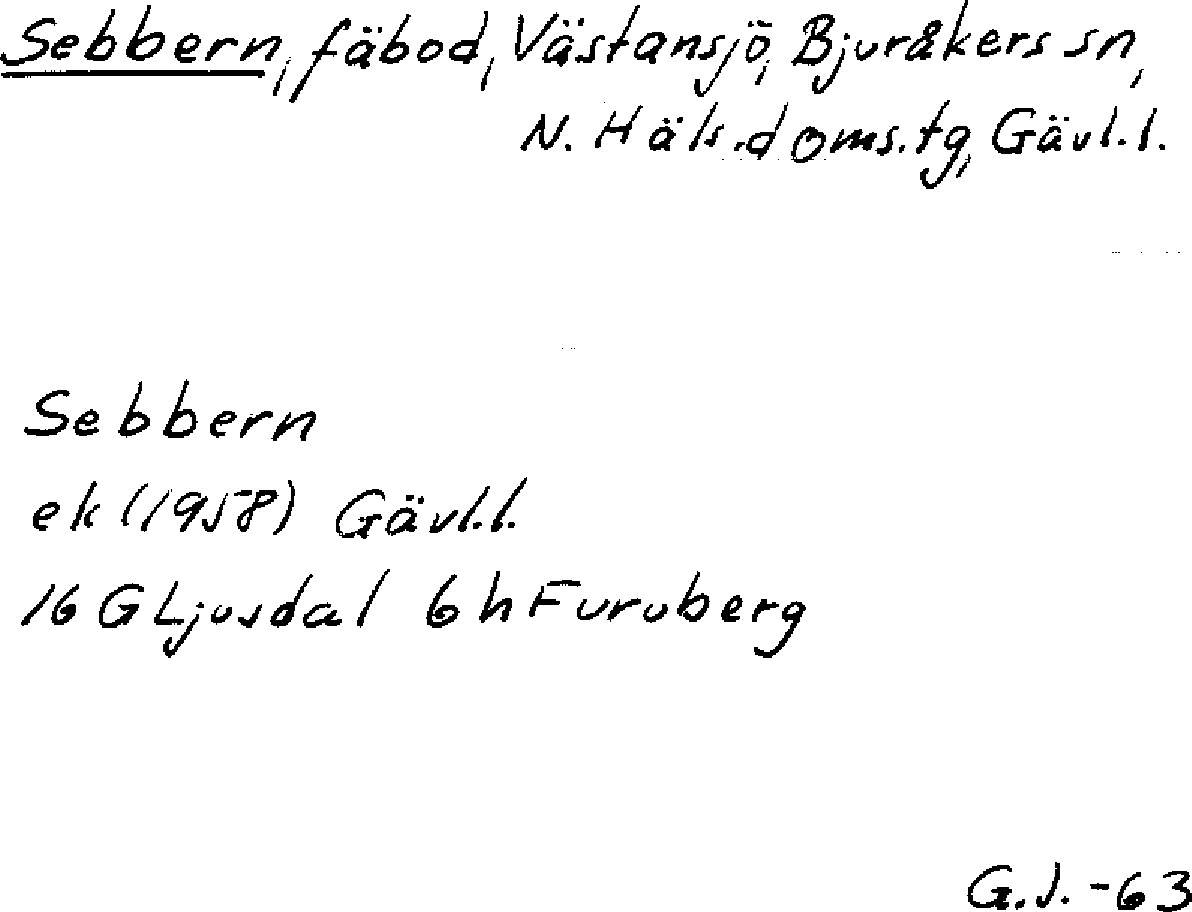 Sebbern, fäbod, Västansjö, Bjuråkers sn,
N. Häls. doms. tg, Gävl. l.
Sebbern
ek (1958) Gävl. l.
16 G Ljusdal 6 h Furuberg
G. J. -63